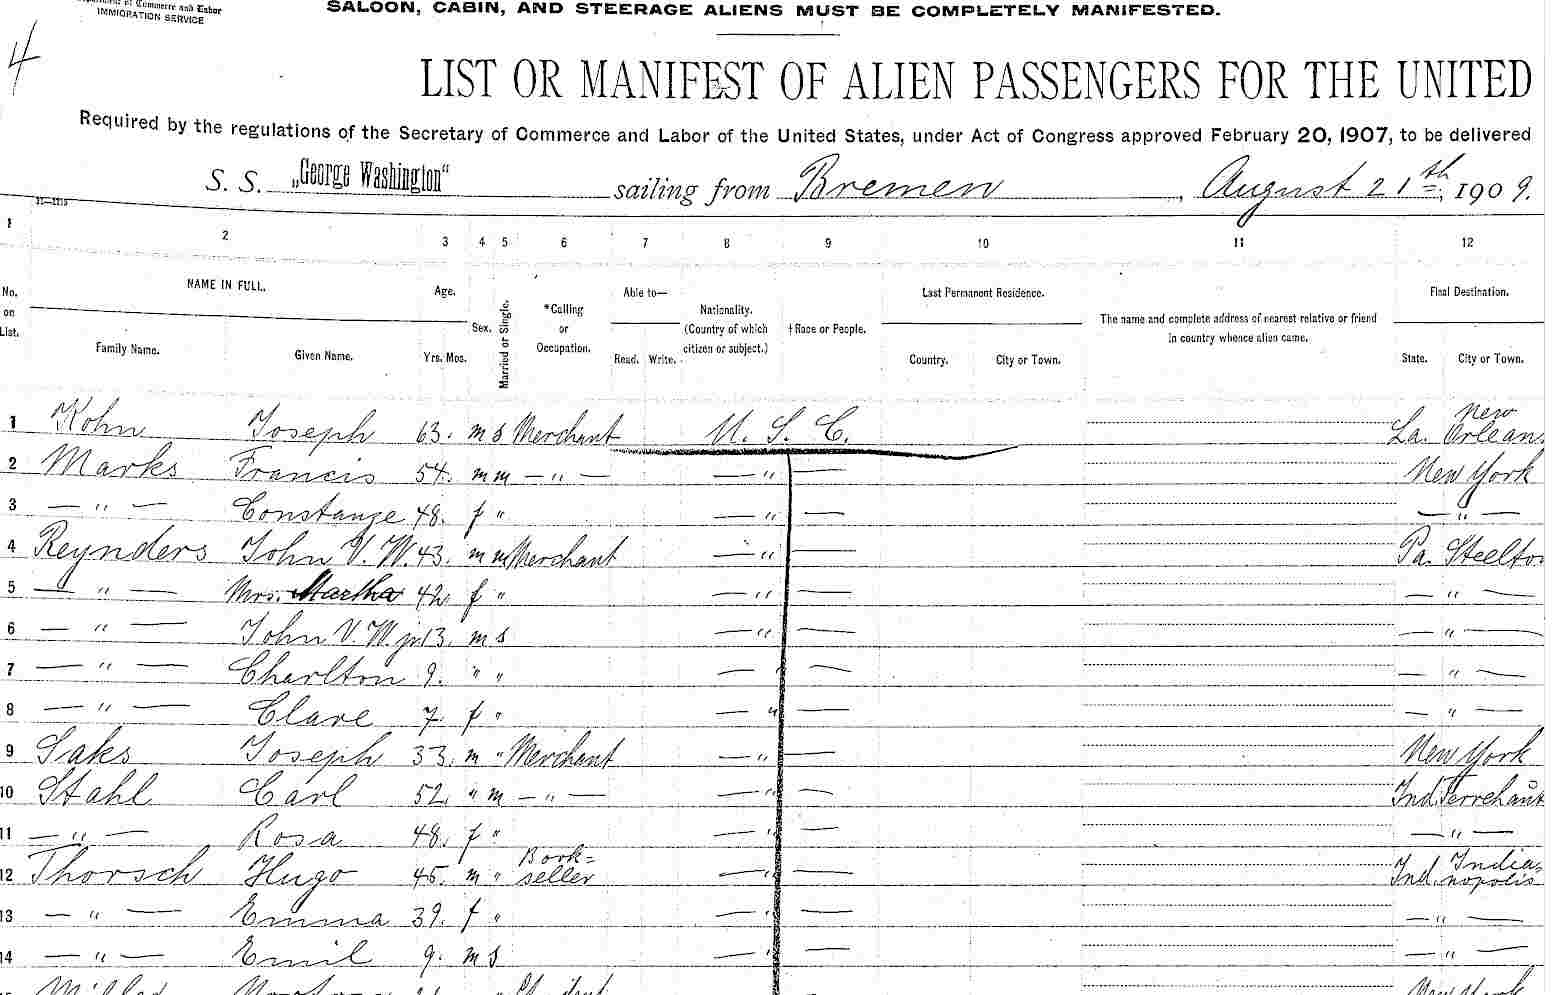 of Commerce and Labor
IMMIGRATION SERVICE
SALOON, CABIN, AND STEERAGE ALIENS MUST BE COMPLETELY MANIFESTED.
4
LIST OR MANIFEST OF ALIEN PASSENGERS FOR THE UNITED
Required by the regulations of the Secretary of Commerce and Labor of the United States, under Act of Congress approved February 20, 1907, to be delivered
S. S. „George Washington“ sailing from Bremen, August 21th, 1909.
1 2 3 4 5 6 7 8 9 10 11 12
No. on List.
NAME IN FULL.
Family Name. Given Name.
Age.
Yrs. Mos.
Sex.
Married or Single.
*Calling or Occupation.
Able to—
Read. Write.
Nationality. (Country of which citizen or subject.)
†Race or People.
Last Permanent Residence.
Country. City or Town.
The name and complete address of nearest relative or friend in country whence alien came.
Final Destination.
State. City or Town.
1 Kohn Joseph 63. m s Merchant U. S. C. La. New Orleans
2 Marks Francis 54. m m — " — — " — New York
3 — " — Constanze 48. f " — " — — " —
4 Reynders John V. W. 43. m m Merchant — " — Pa. Steelton
5 — " — Mrs. Martha 42. f " — " — — " —
6 — " — John V. W. jr. 13. m s — " — — " —
7 — " — Charlton 9. " " — " — — " —
8 — " — Clare 7. f " — " — — " —
9 Saks Joseph 33. m " Merchant — " — New York
10 Stahl Carl 52. " m — " — — " — Ind. Terrehaut
11 — " — Rosa 48. f " — " — — " —
12 Thorsch Hugo 45. m " Bookseller — " — Ind. Indianopolis
13 — " — Emma 39. f " — " — — " —
14 — " — Emil 9. m s — " — — " —
Miller Student New York